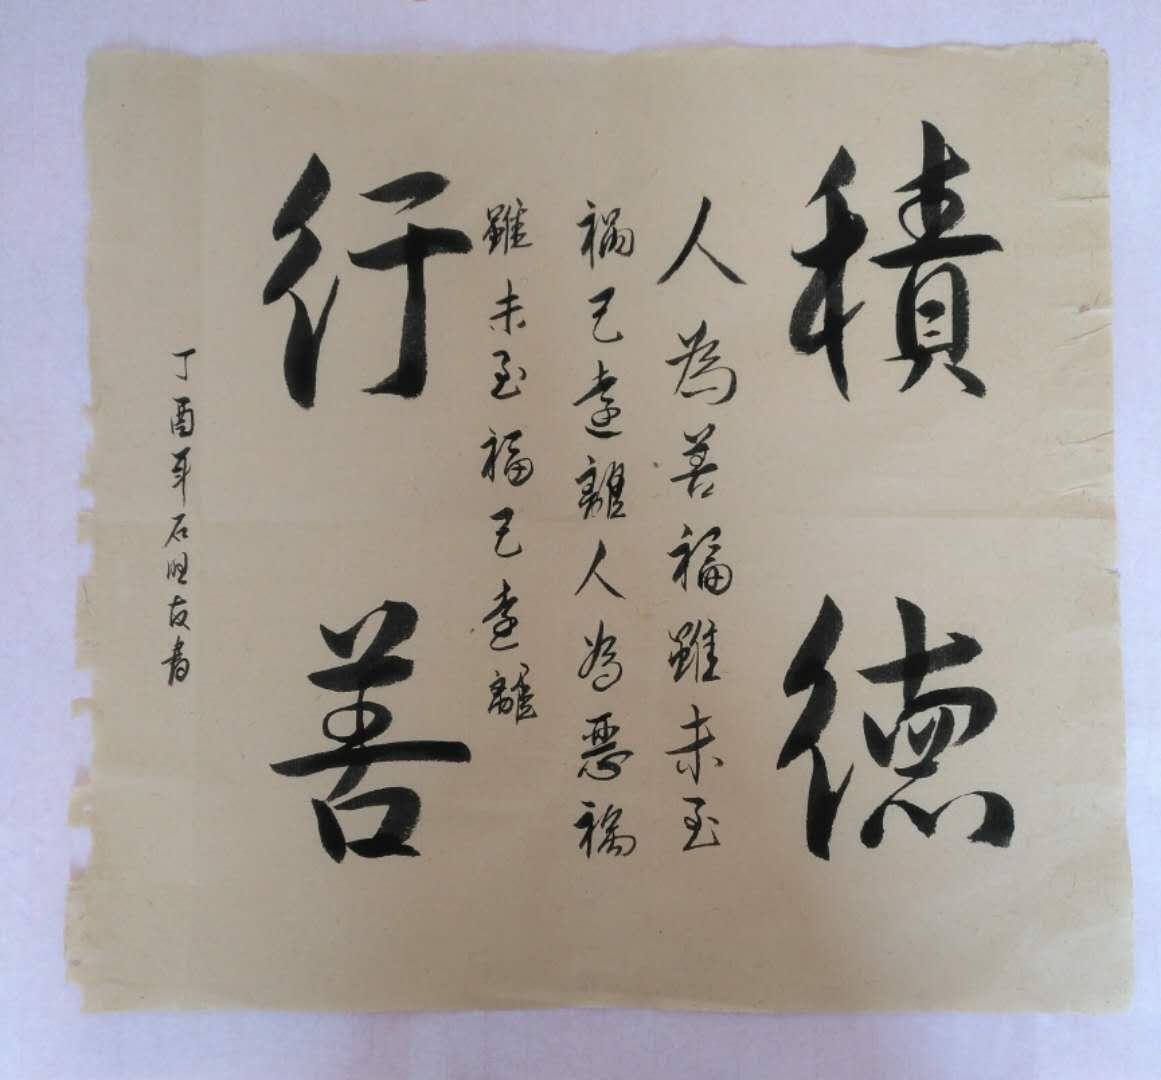 積德
人為善福雖未至
禍已遠離人為惡禍
雖未至福已遠離
行善
丁酉年石旺友書